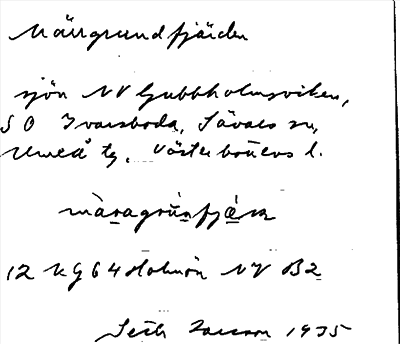 Märrgrundfjärden
sjön NV Gubbholmsviken,
SO Ivarsboda, Sävars sn,
Umeå tg. Västerbottens l.
màragrùnfjæ̀n
12 KG 64 Holmön NV B2
Seth Larsson 1935